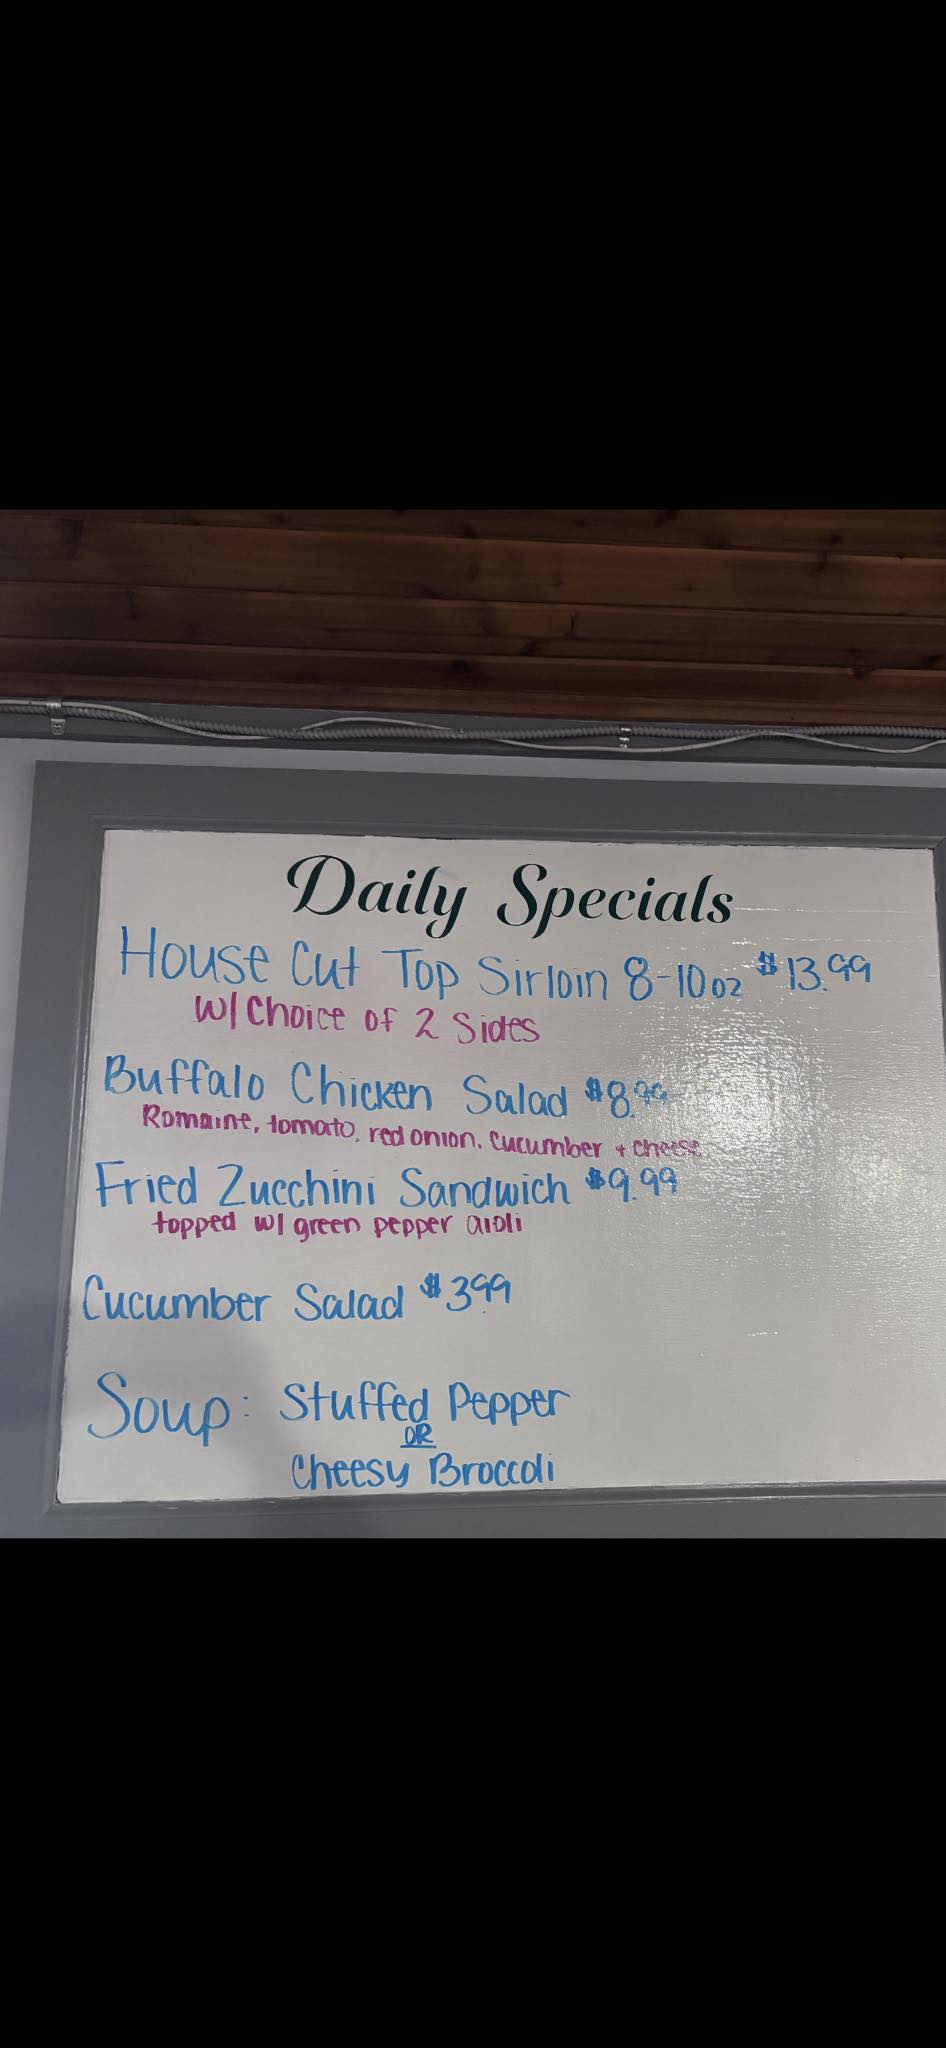 Daily Specials
House Cut Top Sirloin 8-10oz $13.99
w/ Choice of 2 Sides
Buffalo Chicken Salad $8.99
Romaine, tomato, red onion, cucumber + cheese
Fried Zucchini Sandwich $9.99
topped w/ green pepper aioli
Cucumber Salad $3.99
Soup: Stuffed Pepper
OR
Cheesy Broccoli